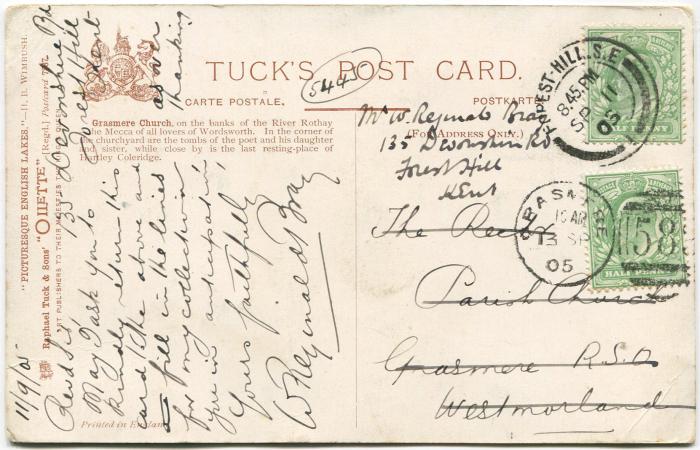 TUCK'S POST CARD.
CARTE POSTALE.
POSTKARTE
(For Address Only.)
5443
Grasmere Church, on the banks of the River Rothay
the Mecca of all lovers of Wordsworth. In the corner of
the churchyard are the tombs of the poet and his daughter
and sister, while close by is the last resting-place of
Hartley Coleridge.
"PICTURESQUE ENGLISH LAKES."—H. B. WIMBUSH.
Raphael Tuck & Sons' "OILETTE" [Regd.] Postcard
ART PUBLISHERS TO THEIR MAJESTIES THE
Printed in England
135 Devonshire Rd
Forest Hill
Kent
11/9/05
Revd Sir
May I ask you to
kindly return this
card (the above and
to fill in the lines
for my collection
you in anticipation
Yours faithfully
W Reginald Bray
as over
thanking
Mr W. Reginald Bray
135 Devonshire Rd
Forest Hill
Kent
The Rector
Parish Church
Grasmere R.S.O
Westmorland
FOREST-HILL.S.E
8.45.PM
SP 11
05
HALFPENNY
GRASMERE
10 AM
13 SP
05
158
HALFPENNY